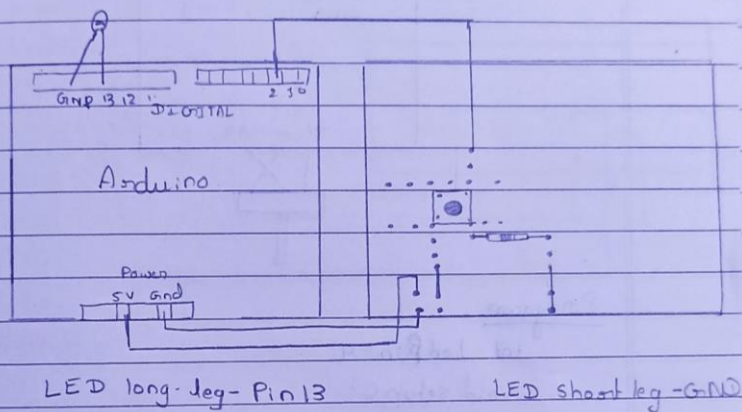 GND 13 12
2 1 0
DIGITAL
Arduino
Power
5V Gnd
LED long-leg-Pin 13
LED short leg -GND